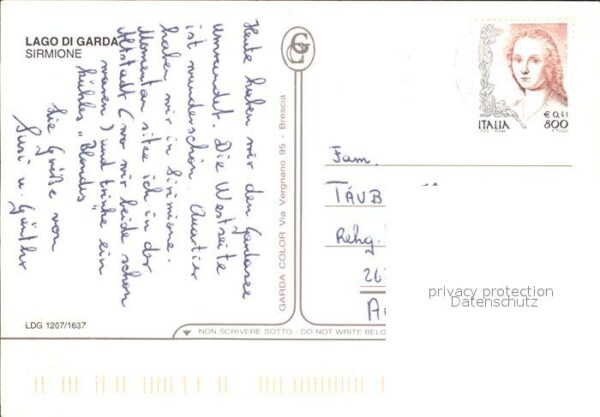 LAGO DI GARDA
SIRMIONE
Heute haben wir den Gardasee
umrundet. Die Westseite
ist wunderschön. Quartier
haben wir in Sirmione.
Momentan sitze ich in der
Altstadt (wo wir beide schon
waren) und trinke ein
kühles "Blondes"
Lie Grüße von
Susi u. Günthr
LDG 1207/1637
GARDA COLOR Via Vergnano 95 - Brescia
NON SCRIVERE SOTTO - DO NOT WRITE BELO
ITALIA
€ 0,41
800
Fam.
TAUB
Rehg.
26
A
privacy protection
Datenschutz